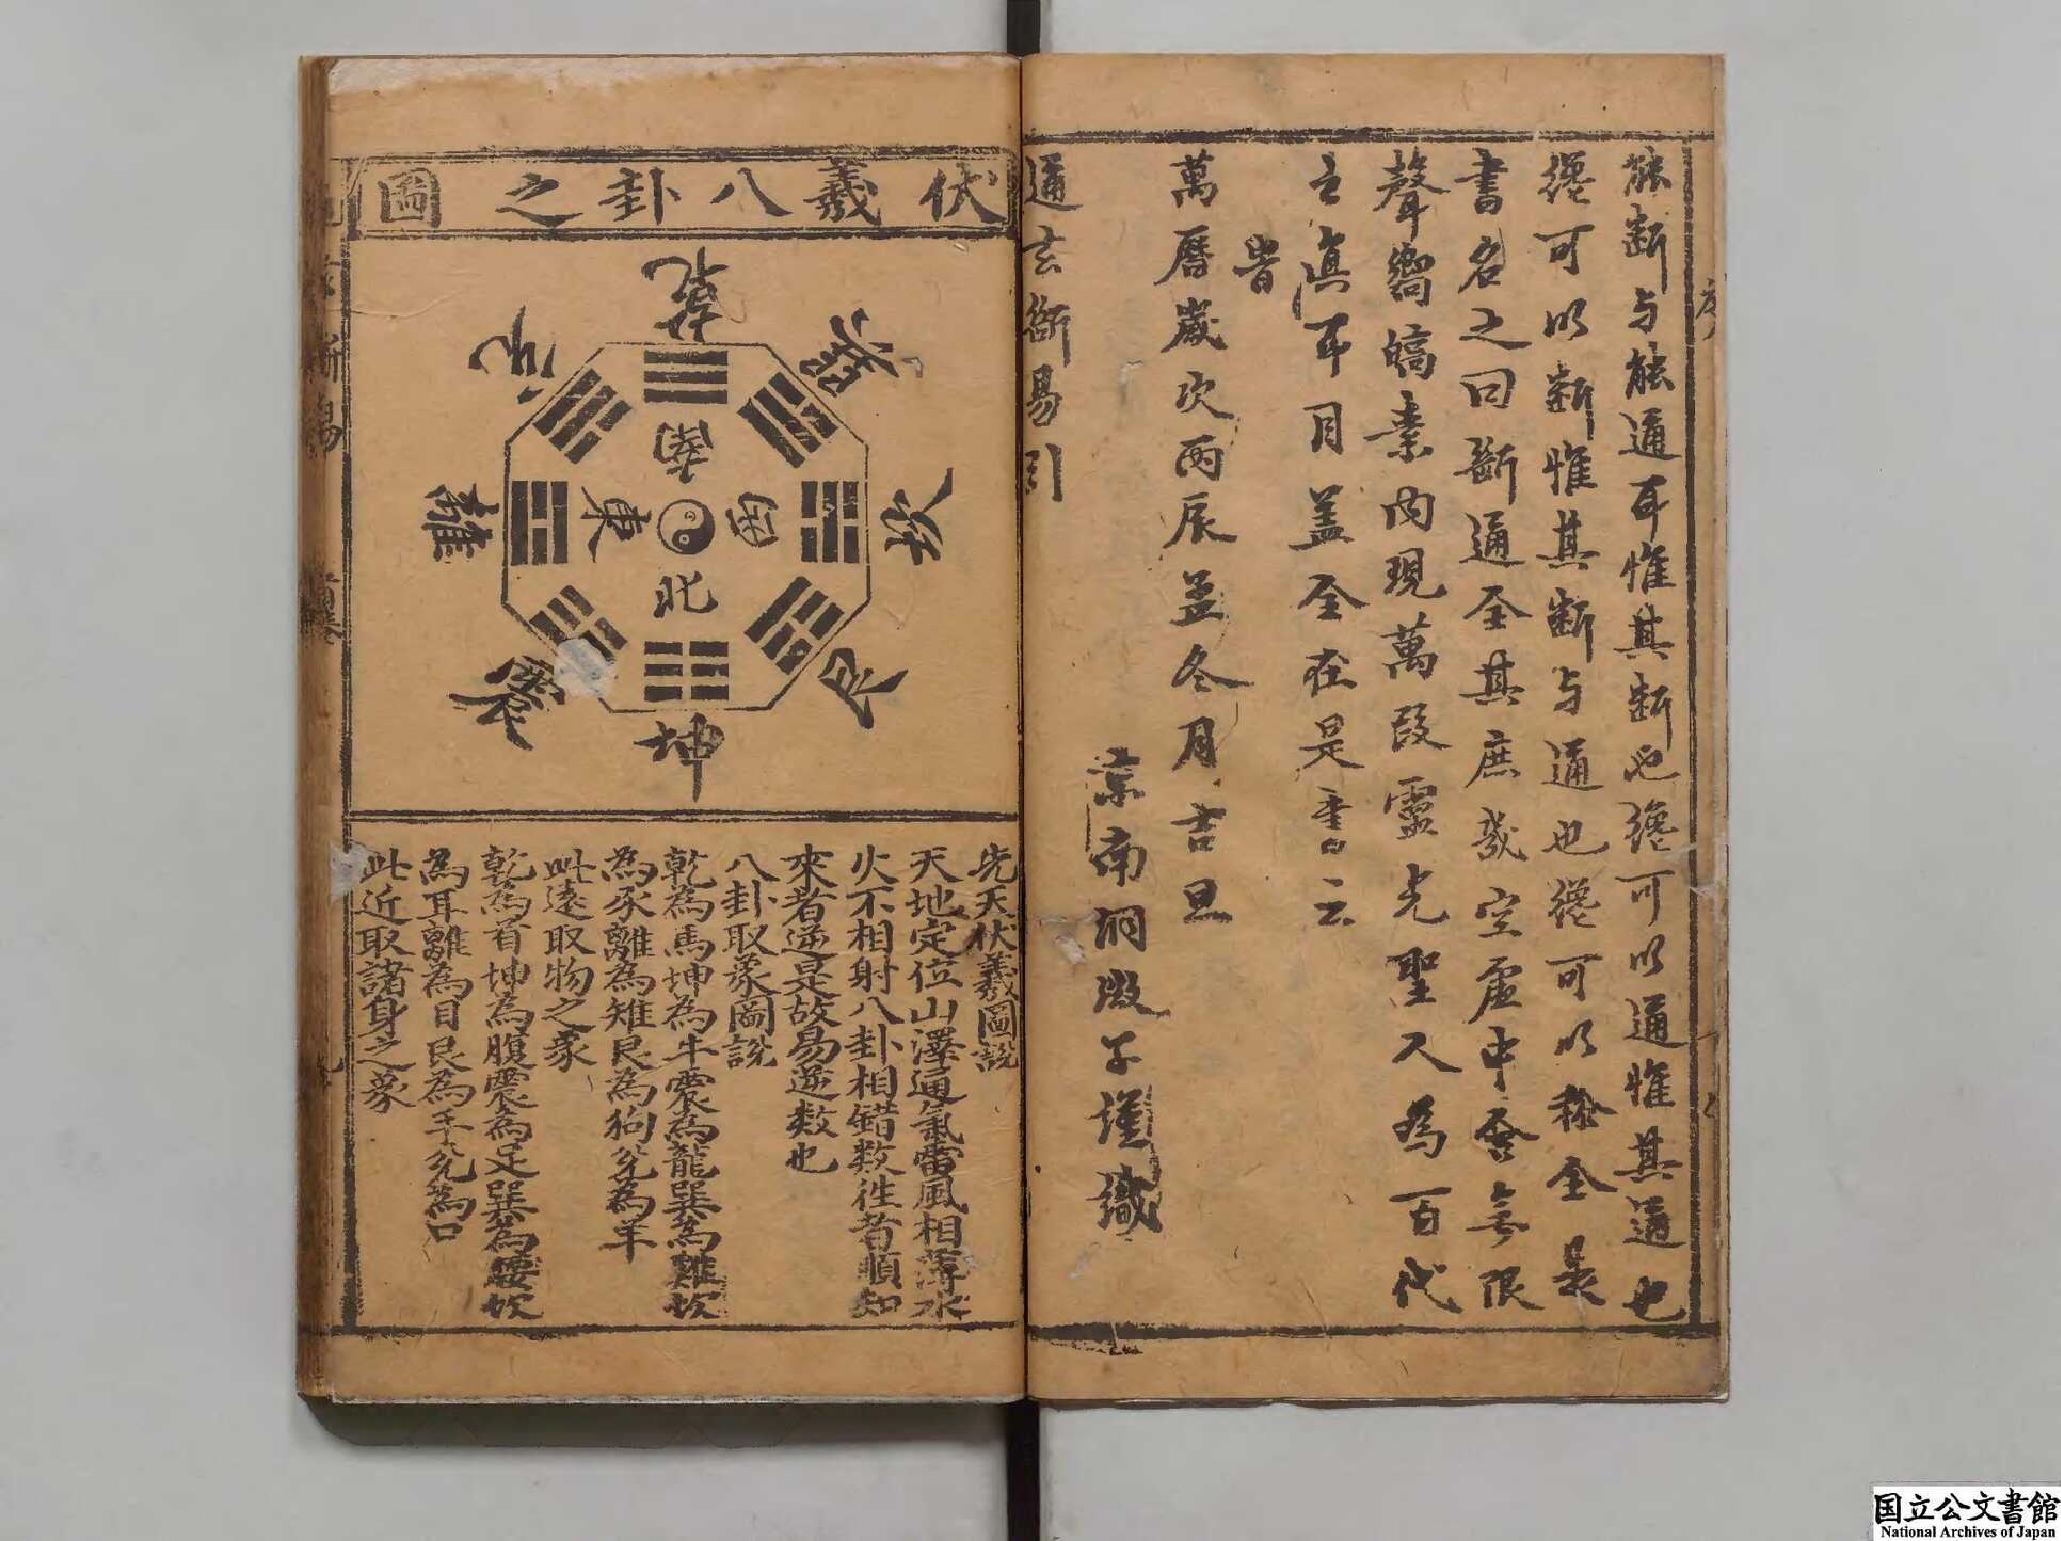 序
能斷与能通耳惟其斷也纔可以通惟其通也
纔可以斷惟其斷与通也纔可以称全是
書名之曰斷通全其庶幾空虛中含無限
聲嚮縞素內現萬段靈光聖人為百代
立眞耳目盖全在是書云
旹
萬曆歲次丙辰孟冬月吉旦
京南洞微子謹識
通玄斷易引
伏羲八卦之圖
乾
兌
離
震
坤
艮
坎
巽
南
東
西
北
先天伏羲圖說
天地定位山澤通氣雷風相薄水
火不相射八卦相錯数徃者順知
來者逆是故易逆数也
八卦取象圖說
乾為馬坤為牛震為龍巽為雞坎
為豕離為雉艮為狗兌為羊
此遠取物之象
乾為首坤為腹震為足巽為腰坎
為耳離為目艮為手兌為口
此近取諸身之象
国立公文書館
National Archives of Japan